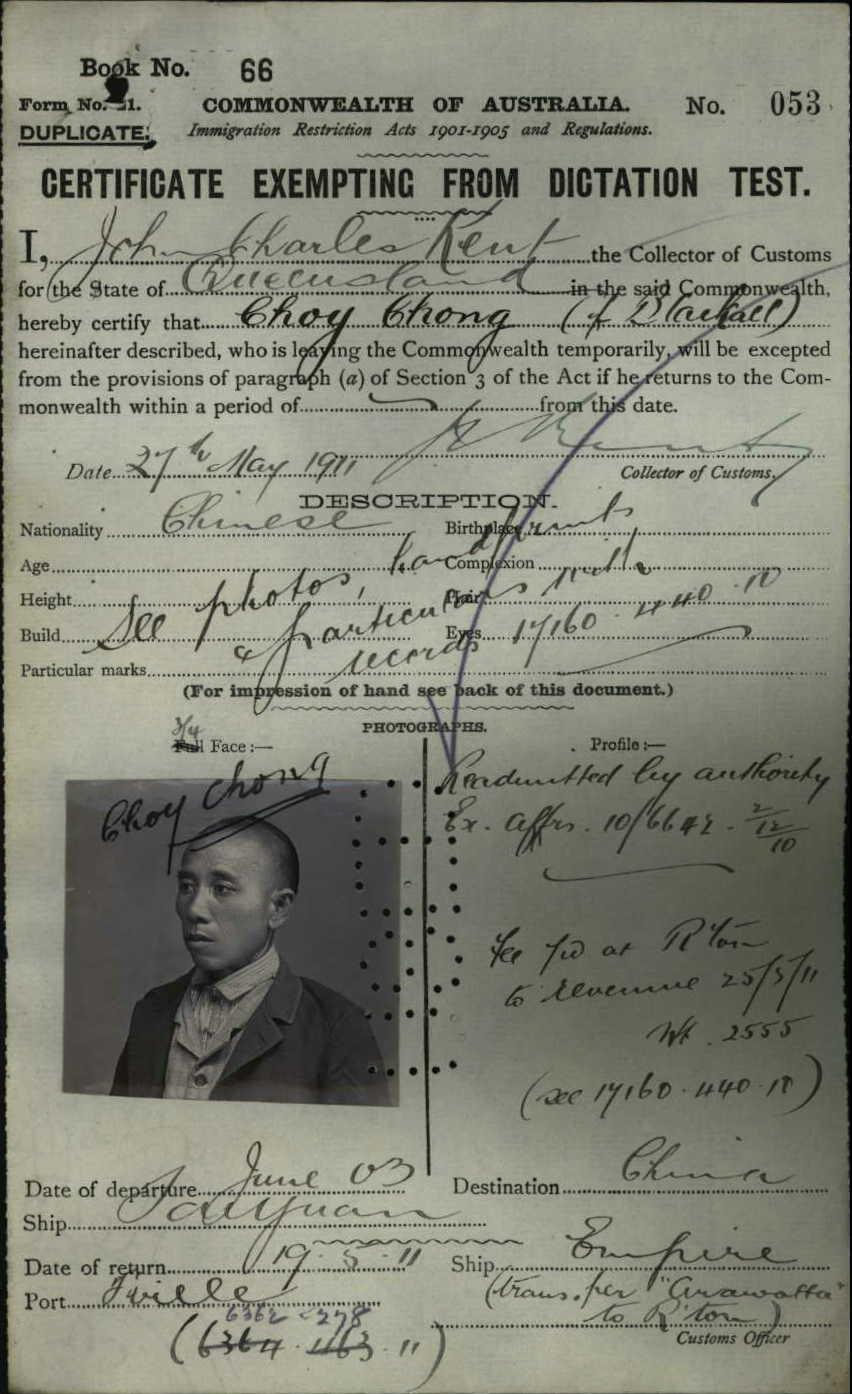 Book No. 66
Form No. 21. COMMONWEALTH OF AUSTRALIA. No. 053
DUPLICATE. Immigration Restriction Acts 1901-1905 and Regulations.
CERTIFICATE EXEMPTING FROM DICTATION TEST.
I, John Charles Kent the Collector of Customs
for the State of Queensland in the said Commonwealth,
hereby certify that Choy Chong (of Blackall)
hereinafter described, who is leaving the Commonwealth temporarily, will be excepted
from the provisions of paragraph (a) of Section 3 of the Act if he returns to the Com-
monwealth within a period of from this date.
Date 27th May 1911 Collector of Customs.
DESCRIPTION.
Nationality Chinese Birthplace
Age Complexion
Height Hair
Build Eyes
Particular marks
See photos, hand prints
& particulars with
records 17160·440·10
(For impression of hand see back of this document.)
PHOTOGRAPHS.
3/4
Full Face:— Profile:—
Choy Chong
Readmitted by authority
Ex. Affrs. 10/6642 - 2/12/10
Fee pd at R'ton
to revenue 25/5/11
2555
(see 17160·440·10)
Date of departure June 03 Destination China
Ship Taiyuan
Date of return 19·5·11 Ship Empire
Port T'ville (trans. per "Arawatta"
to R'ton)
6362 - 278
(6364 · 1163 · 11)
Customs Officer